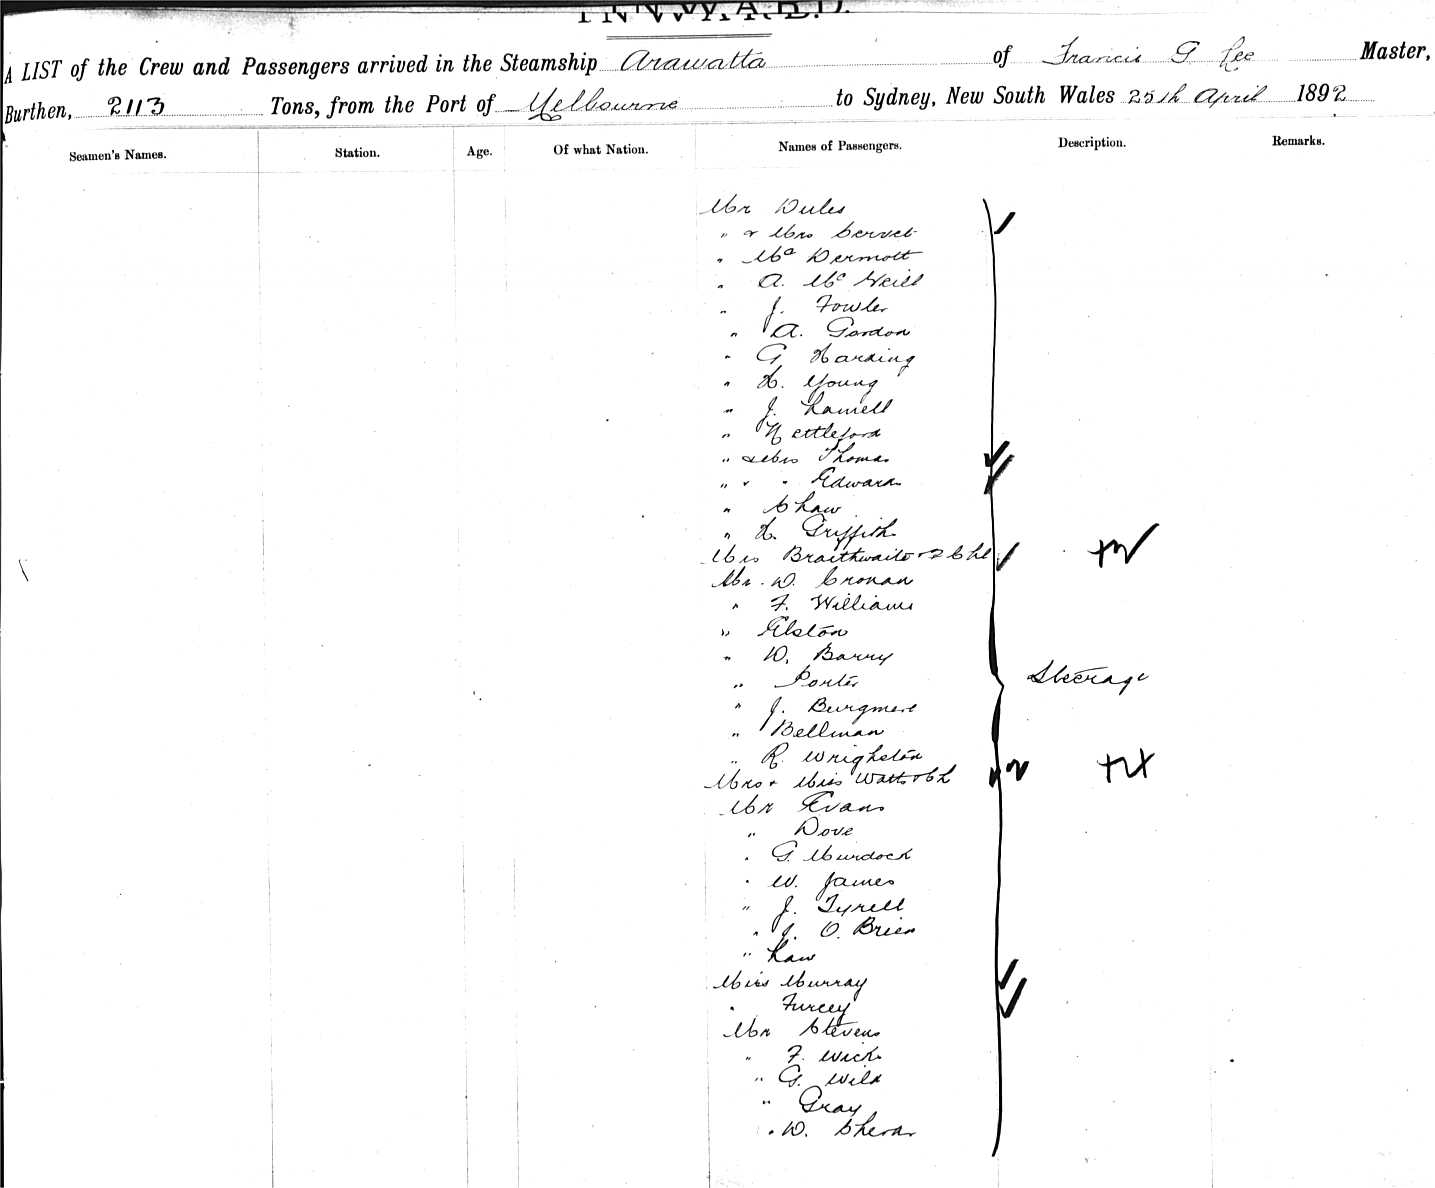 INWARD.
A LIST of the Crew and Passengers arrived in the Steamship Arawatta of Francis G Lee Master,
Burthen, 2113 Tons, from the Port of Melbourne to Sydney, New South Wales 25th April 1892
Seamen's Names. Station. Age. Of what Nation. Names of Passengers. Description. Remarks.
Mr Dules
" & Mrs Servet
" Mc Dermott
" A. Mc Neill
" J. Fowler
" A. Gordon
" G Harding
" H. Young
" J. Lamell
" Nettleford
" & Mrs Thomas
" " " Edwards
" Shaw
" H. Griffith
Mrs Braithwaite & 2 Chl
Mr. W. Cronan
" F. Williams
" Elston
" W. Barry
" Porter Steerage
" J. Burgmere
" Bellman
" R. Wrighston
Mrs & Miss Watts & Ch
Mr Evans
" Dove
" G. Murdoch
" W. James
" J. Tyrell
" J. O. Brien
" Law
Miss Murray
" Furcey
Mr Stevens
" F. Wick
" G. Wild
" Gray
" W.